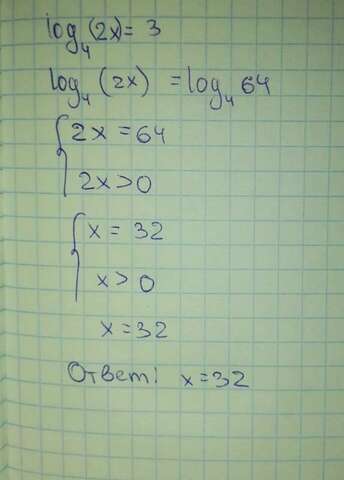 log₄(2x) = 3
log₄(2x) = log₄ 64
{ 2x = 64
2x > 0
{ x = 32
x > 0
x = 32
Ответ: x = 32